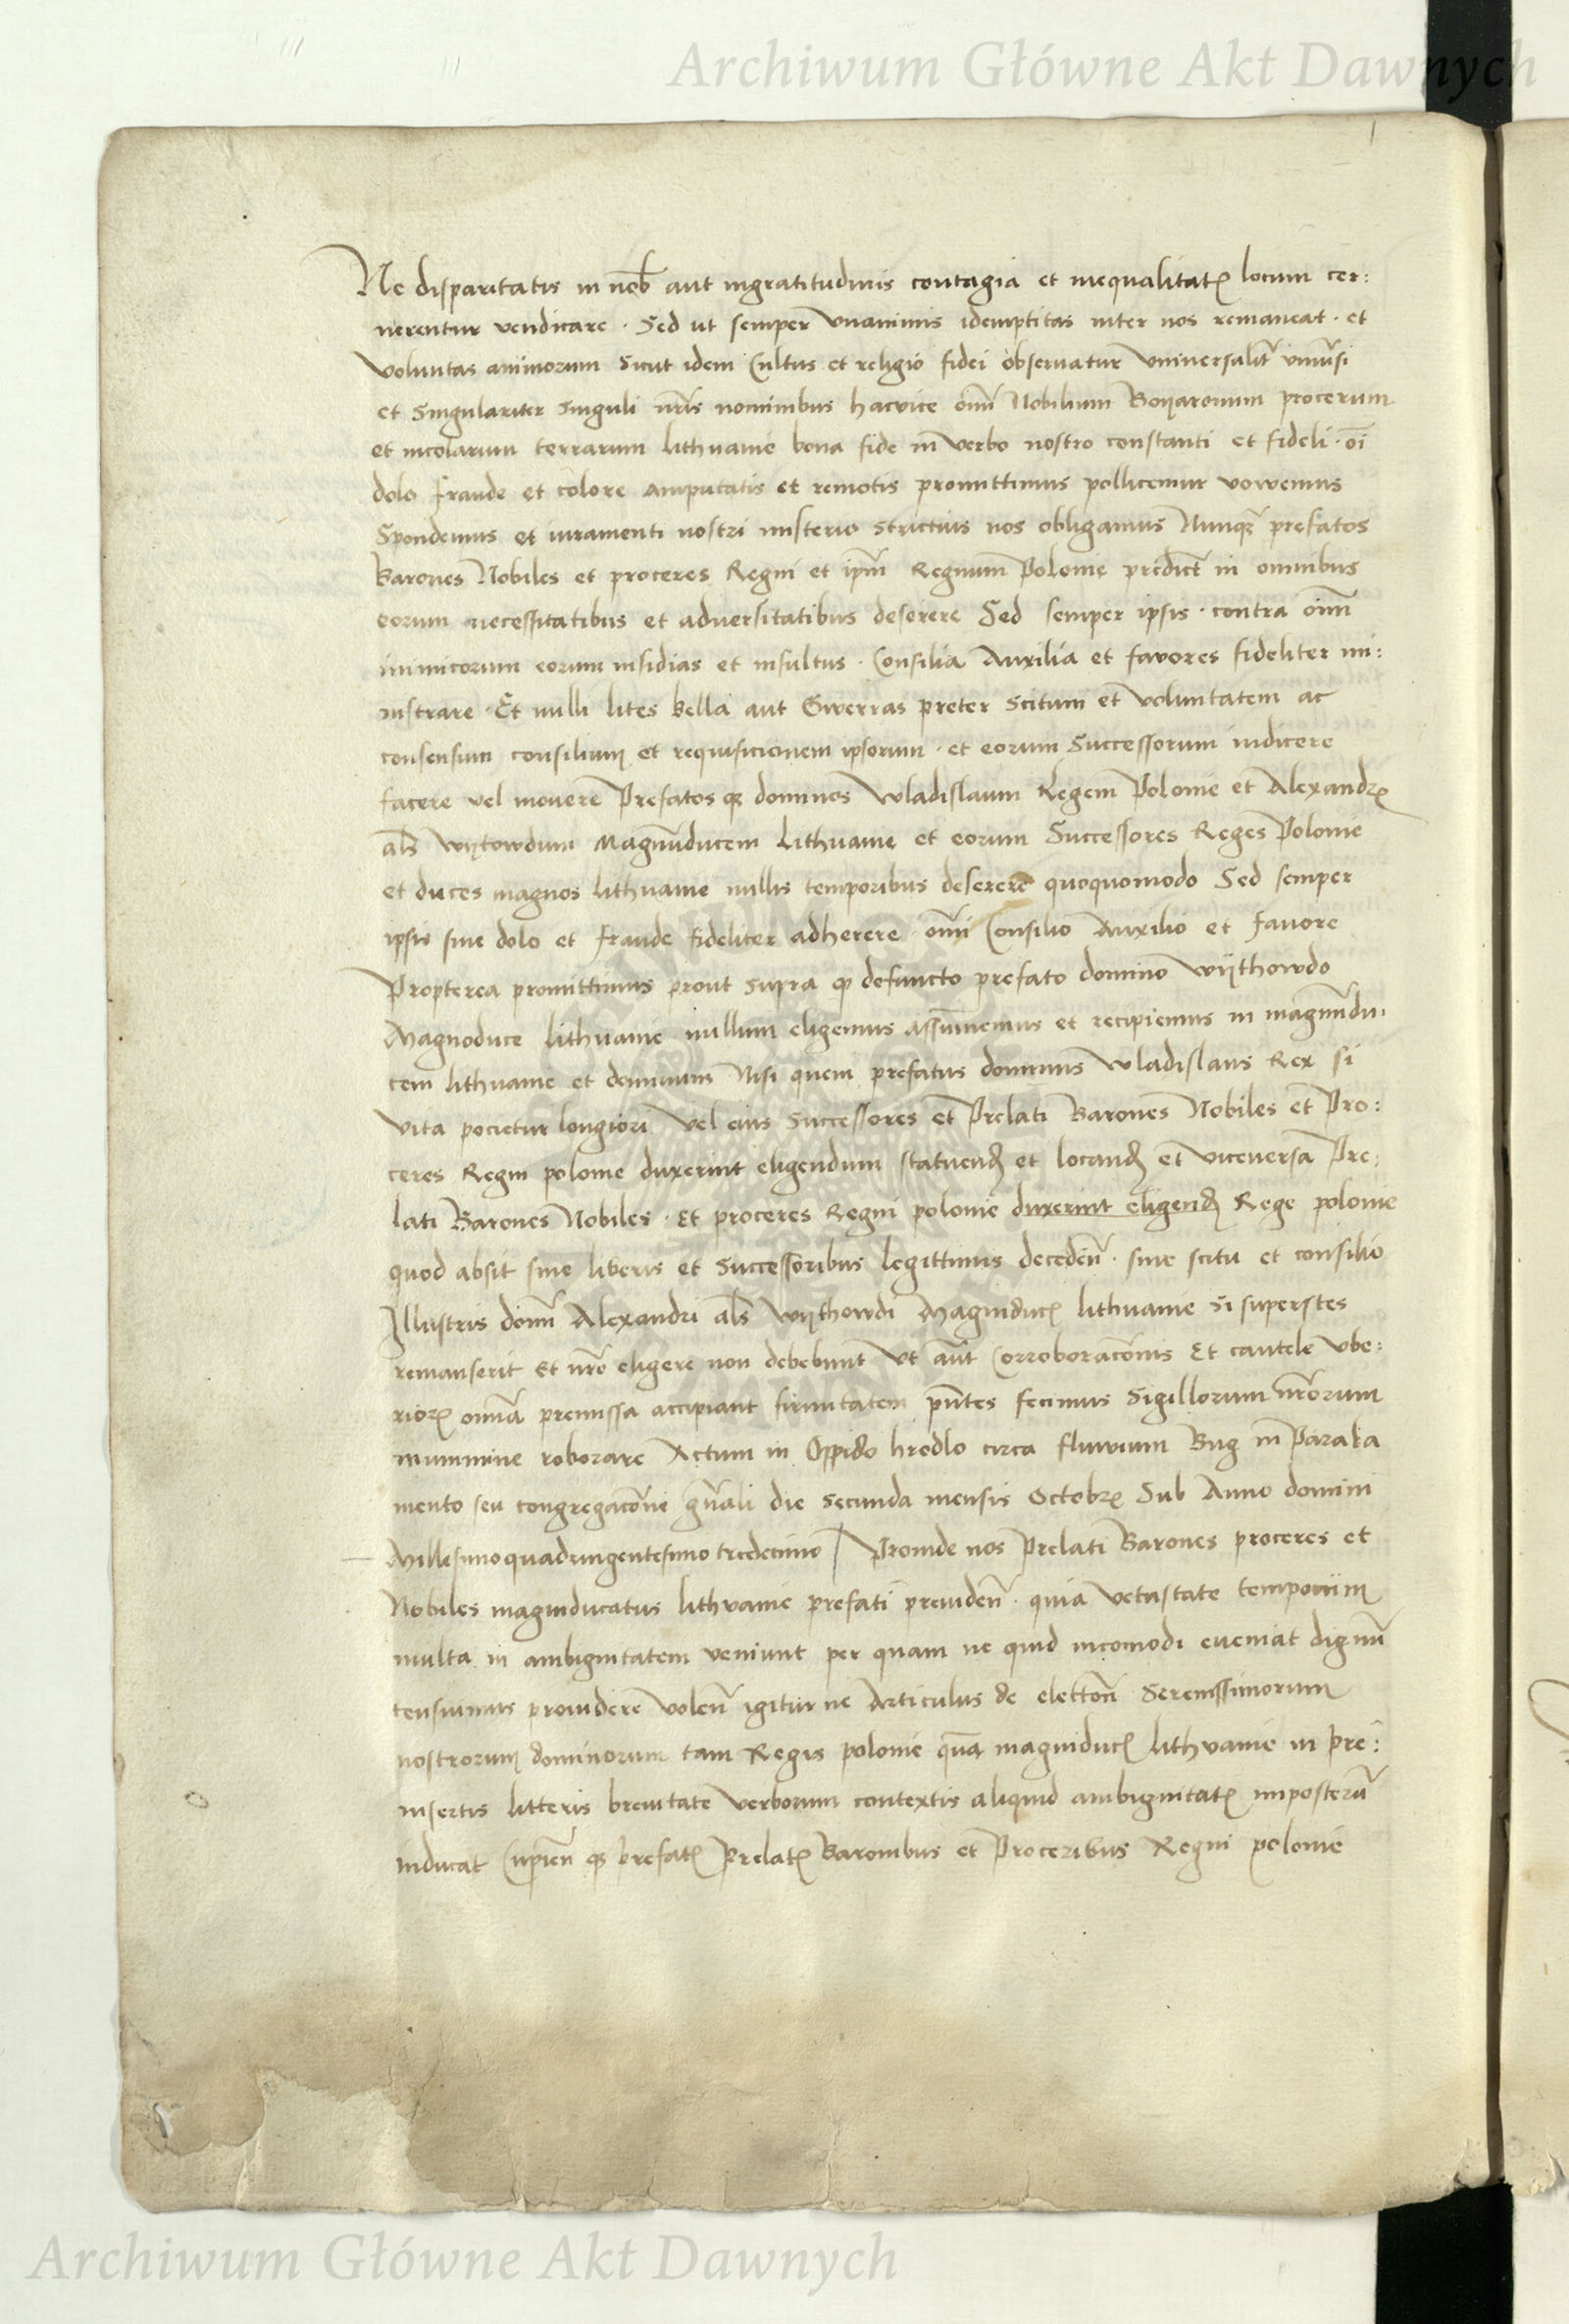 Archiwum Główne Akt Dawnych
Ne disparitatis in nob̃ aut ingratitudinis contagia et inequalitatꝭ locum cer:
nerentur vendicare · Sed ut semper vnanimis idemptitas inter nos remaneat · et
voluntas animorum Sicut idem Cultus et religio fidei observatur vniversalit̃ vniũsi
et Singulariter Singuli nr̃is nominibus hacvice oim̃ Nobilium Boyaronum procerum
et incolarum terrarum lithuanie bona fide in verbo nostro constanti et fideli · oĩ
dolo fraude et colore amputatis et remotis promittimus pollicemur vowemus
Spondemus et iuramenti nostri misterio strictius nos obligamus Nunqꝫ prefatos
barones Nobiles et proceres Regni et ip̃m Regnum Polonie predict̃ in omnibus
eorum necessitatibus et adversitatibus deserere Sed semper ipsis · contra oim̃
inimicorum eorum insidias et insultus · Consilia Auxilia et favores fideliter mi:
nistrare · Et nulli lites bella aut Gwerras preter scitum et voluntatem ac
consensum consilium et requisicionem ipsorum · et eorum Successorum indicere
facere vel movere Prefatos qꝫ dominos Wladislaum Regem Polonie et Alexandrꝭ
al̃s Wytowdum Magnũducem Lithuanie et eorum Successores Reges Polonie
et duces magnos lithuanie nullis temporibus deserere quoquomodo Sed semper
ipsis sine dolo et fraude fideliter adherere · om̃i Consilio Auxilio et favore
Propterea promittimus prout supra qꝫ defuncto prefato domino Wythowdo
Magnoduce lithuanie nullum eligemus assum̃emus et recipiemus in magnũdu:
cem lithuanie et dominum Nisi quem prefatus dominus Wladislaus Rex si
vita pocietur longiori vel eius Successores et Prelati Barones Nobiles et Pro:
ceres Regni polonie duxerint eligendum statuend̃ et locand̃ et viceversa Pre:
lati Barones Nobiles · Et proceres Regni polonie duxerint eligend̃ Rege polonie
quod absit sine liberis et Successoribus legittimis decedeñ · sine scitu et consilio
Illustris domĩ Alexandri al̃s Wythowdi Magniducꝭ lithuanie si superstes
remanserit Et nr̃o eligere non debebunt Ut aũt Corroboracõnis Et cautele vbe:
riorꝭ omnia premissa accipiant firmitatem p̃ntes fecimus Sigillorum nr̃orum
mummine roborare Actum in Oppido hrodlo circa fluvium Bug in Parala
mento seu congregacõne gñali die Secunda mensis Octobrꝭ Sub Anno domini
Millesimoquadringentesimo tredecimo / Proinde nos Prelati Barones proceres et
Nobiles magniducatus lithvanie prefati prevideñ · quia vetustate temporum
multa in ambiguitatem veniunt per quam ne quid incomodi eveniat dignũ
censuimus providere voleñ igitur ne Articulus de elect̃oni Serenissimorum
nostrorum dominorum tam Regis polonie quã magniducꝭ lithvanie in pre:
insertis litteris brevitate verborum contextis aliquid ambiguitatꝭ imposterũ
inducat Cupieñ qꝫ prefatꝭ Prelatꝭ Baronibus et Proceribus Regni polonie
Archiwum Główne Akt Dawnych